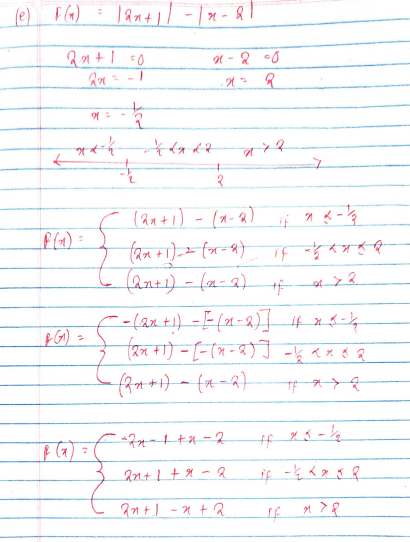 (e) f(x) = |2x+1| - |x-2|
2x+1=0 x-2=0
2x=-1 x=2
x=-1/2
x<-1/2 -1/2<x<2 x>2
-1/2 2
f(x) = { (2x+1) - (x-2) if x≤-1/2
(2x+1) - (x-2) if -1/2<x≤2
(2x+1) - (x-2) if x>2
f(x) = { -(2x+1) - [-(x-2)] if x≤-1/2
(2x+1) - [-(x-2)] -1/2<x≤2
(2x+1) - (x-2) if x>2
f(x) = { -2x-1+x-2 if x≤-1/2
2x+1+x-2 if -1/2<x≤2
2x+1-x+2 if x>2